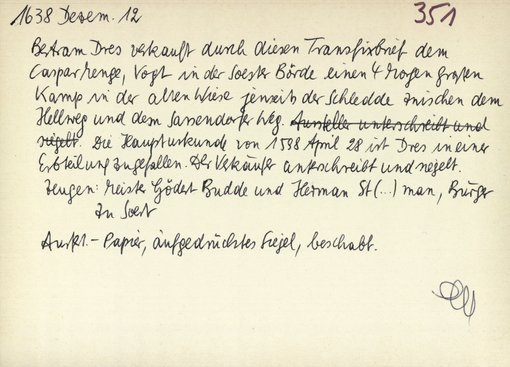 1638 Dezem. 12 351
Bertram Dres verkauft durch diesen Transfixbrief dem
Caspar Menge, Vogt in der Soester Börde einen 4 Morgen großen
Kamp in der alten Wiese jenseits der Schledde zwischen dem
Hellweg und dem Sassendorfer Weg. Aussteller unterschreibt und
siegelt. Die Haupturkunde von 1598 April 28 ist Dres in einer
Erbteilung zugefallen. Der Verkäufer unterschreibt und siegelt.
Zeugen: Meister Gödert Budde und Herman St(...)man, Bürger
zu Soest
Ausf. - Papier, aufgedrücktes Siegel, beschabt.